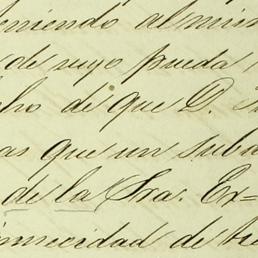 teniendo al mism
de suyo pueda
cho de que D.
as que un suba
de la Sra. Ex=
de